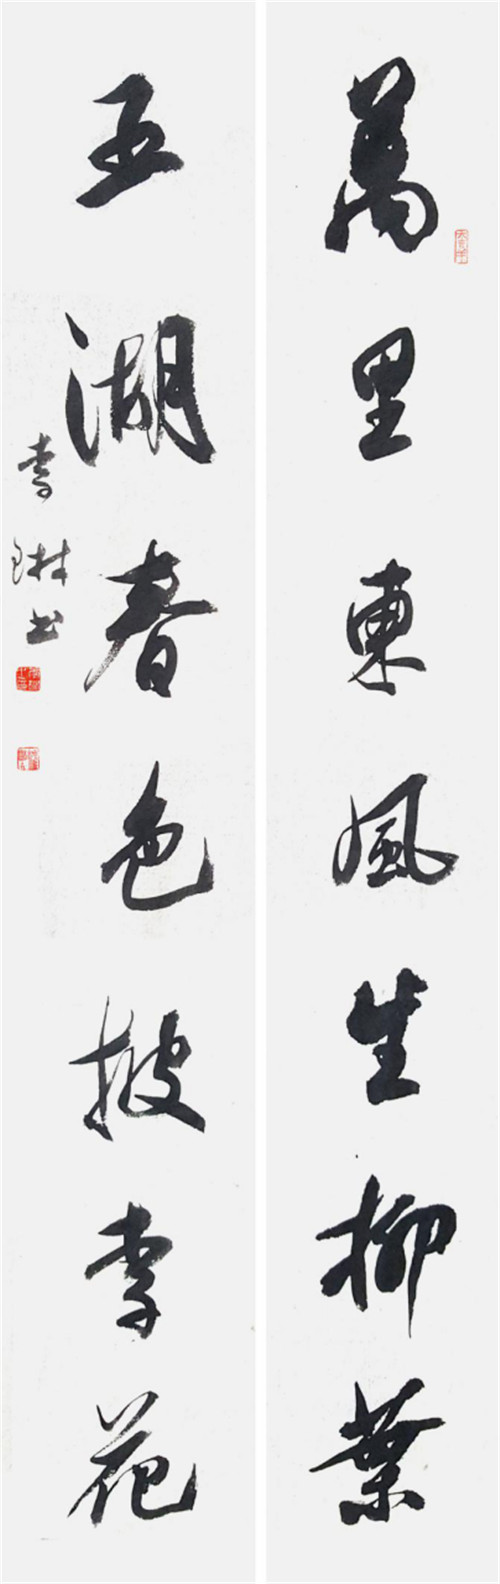 萬里東風生柳葉
五湖春色披李花
李琳书